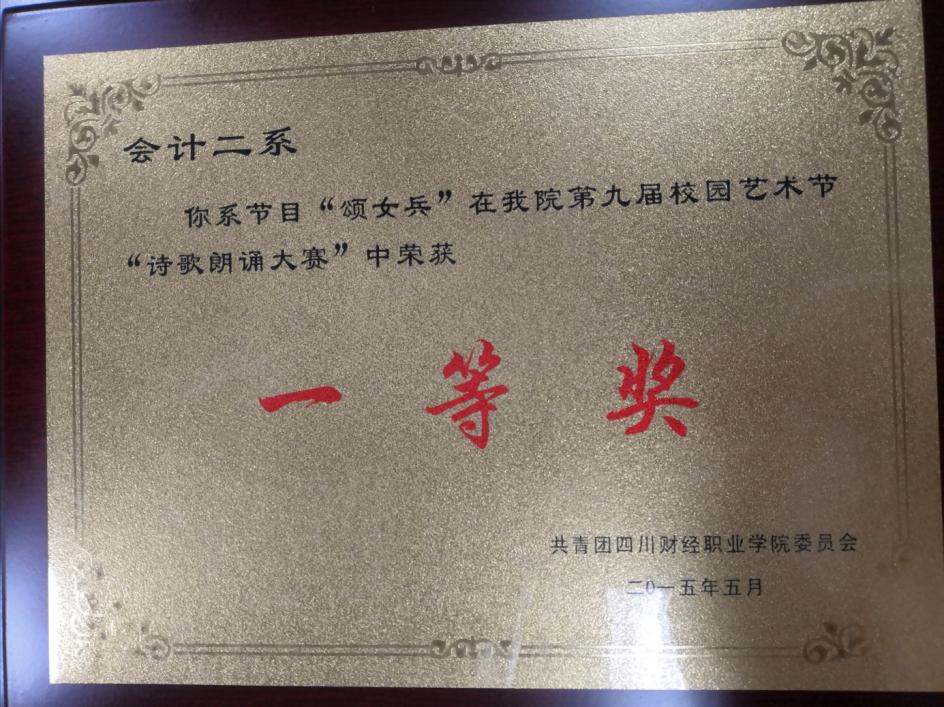 会计二系
你系节目“颂女兵”在我院第九届校园艺术节
“诗歌朗诵大赛”中荣获
一等奖
共青团四川财经职业学院委员会
二0一五年五月